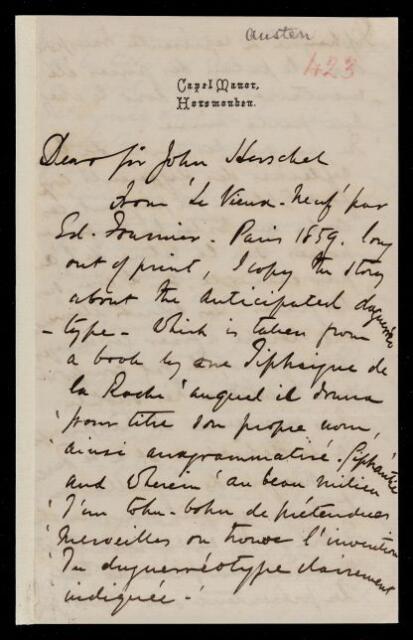 Austen
423
Capel Manor,
Horsmonden.
Dear Sir John Herschel
From 'Le Vieux-Neuf' par
Ed. Fournier. Paris 1859. long
out of print, I copy the story
about the anticipated daguerréo
-type- which is taken from
a book by one Tiphaigne de
la Roche 'auquel il donna
'pour titre son propre nom,
'ainsi anagrammatisé. Giphantie
and wherein 'au beau milieu
'd'un tohu-bohu de prétendues
'merveilles on trouve l'invention
'du daguerréotype clairement
'indiquée.'